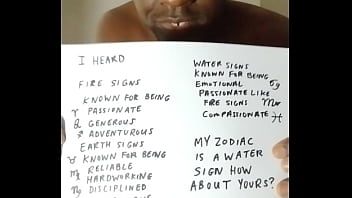 I HEARD
FIRE SIGNS
KNOWN FOR BEING
♈ PASSIONATE
♌ GENEROUS
♐ ADVENTUROUS
EARTH SIGNS
♉ KNOWN FOR BEING
♍ RELIABLE
HARDWORKING
♑ DISCIPLINED
WATER SIGNS
KNOWN FOR BEING
EMOTIONAL ♋
PASSIONATE LIKE
FIRE SIGNS ♏
COMPASSIONATE ♓
MY ZODIAC
IS A WATER
SIGN HOW
ABOUT YOURS?